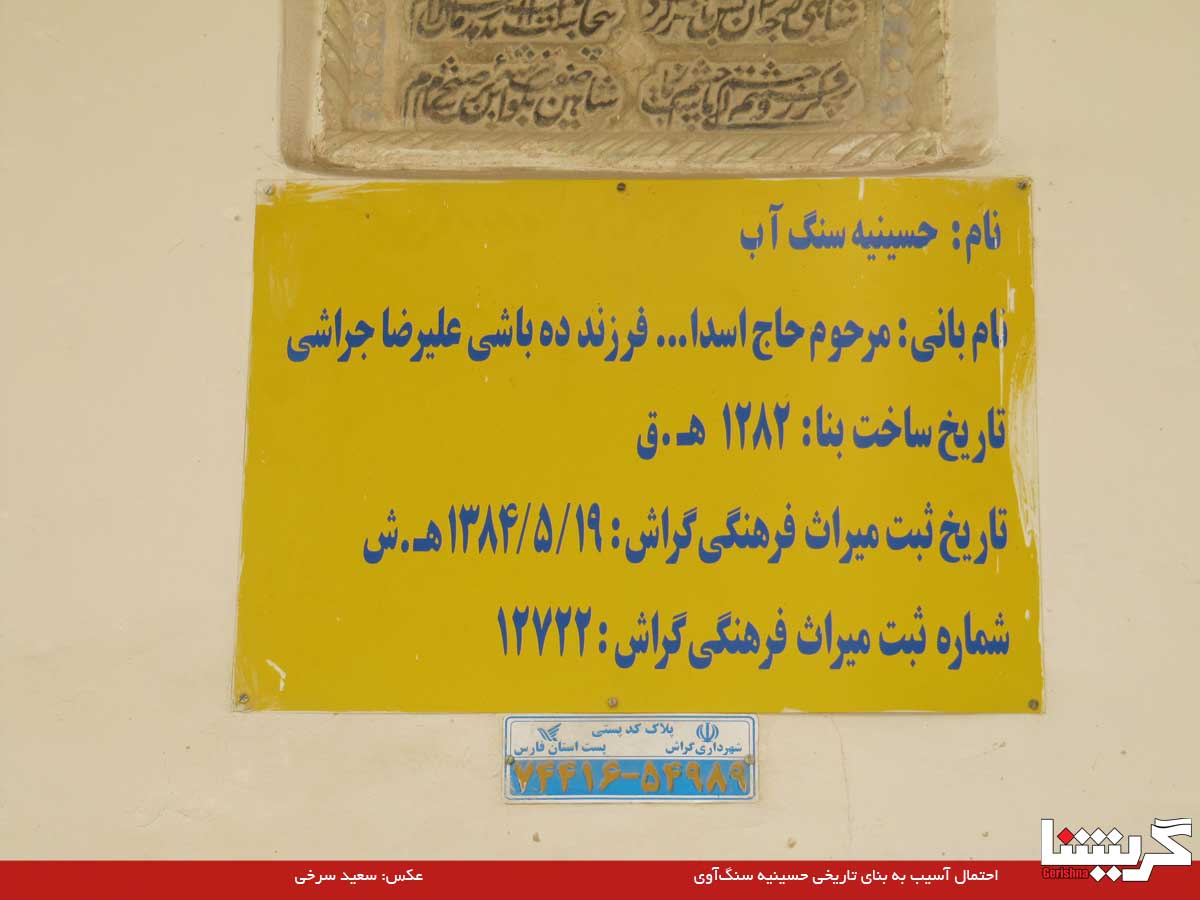 نام: حسینیه سنگ آب
نام بانی: مرحوم حاج اسدا... فرزند ده باشی علیرضا جراشی
تاریخ ساخت بنا: ۱۲۸۲ هـ.ق
تاریخ ثبت میراث فرهنگی گراش: ۱۳۸۴/۵/۱۹ هـ.ش
شماره ثبت میراث فرهنگی گراش: ۱۲۷۲۲
پلاک کد پستی
شهرداری گراش پست استان فارس
۷۴۴۱۶-۵۴۹۸۹
گریشنا
Gerishna
احتمال آسیب به بنای تاریخی حسینیه سنگ‌آوی
عکس: سعید سرخی